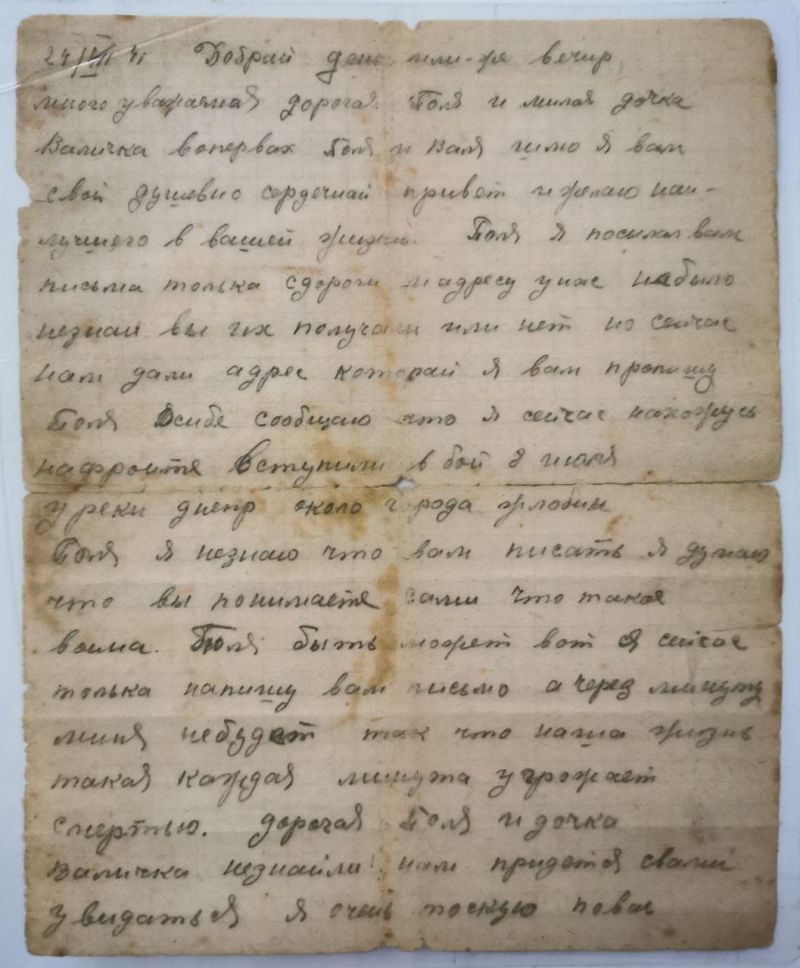 24/VII 41 Добрай день или-же вечир
много уважаемая дорогая Поля и милая дочка
Валичка вопервах Поля и Валя шлю я вам
свой душевно сердечнай привет и желаю наи-
лучшего в вашей жизни. Поля я посылал вам
письма только сдороги и адресу унас небыло
незнаю вы их получали или нет но сейчас
нам дали адрес которай я вам пропишу
Поля Осибе сообщаю что я сейчас нахожусь
нафронте Вступили в бой 8 июля
у реки днепр около города жлобин
Поля я незнаю что вам писать я думаю
что вы понимаете сами что такое
воина. Поля быть может вот я сейчас
только напишу вам письмо а через минуту
миня небудет так что наша жизнь
такая каждая минута угрожает
смертью. дорогая Поля и дочка
Валичка незнаю нам придется свами
увидаться я очень тоскую повас